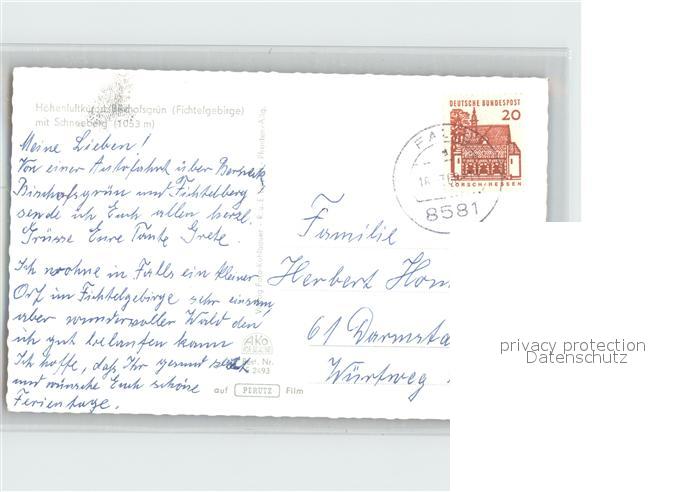 Höhenluftkurort Bischofsgrün (Fichtelgebirge)
mit Schneeberg (1053 m)
Meine Lieben!
Von einer Autofahrt über Berneck
Bischofsgrün und Fichtelberg
sende ich Euch allen herzl.
Grüsse Eure Tante Grete.
Ich wohne in Falls ein kleiner
Ort im Fichtelgebirge sehr einsam,
aber wundervoller Wald den
ich gut belaufen kann
Ich hoffe, daß Ihr gesund seid
und wünsche Euch schöne
Ferientage.
AKO
Nr.
2493
auf PERUTZ Film
DEUTSCHE BUNDESPOST
20
LORSCH/HESSEN
8581
Familie
Herbert
61 Darmsta
Würtweg
privacy protection
Datenschutz